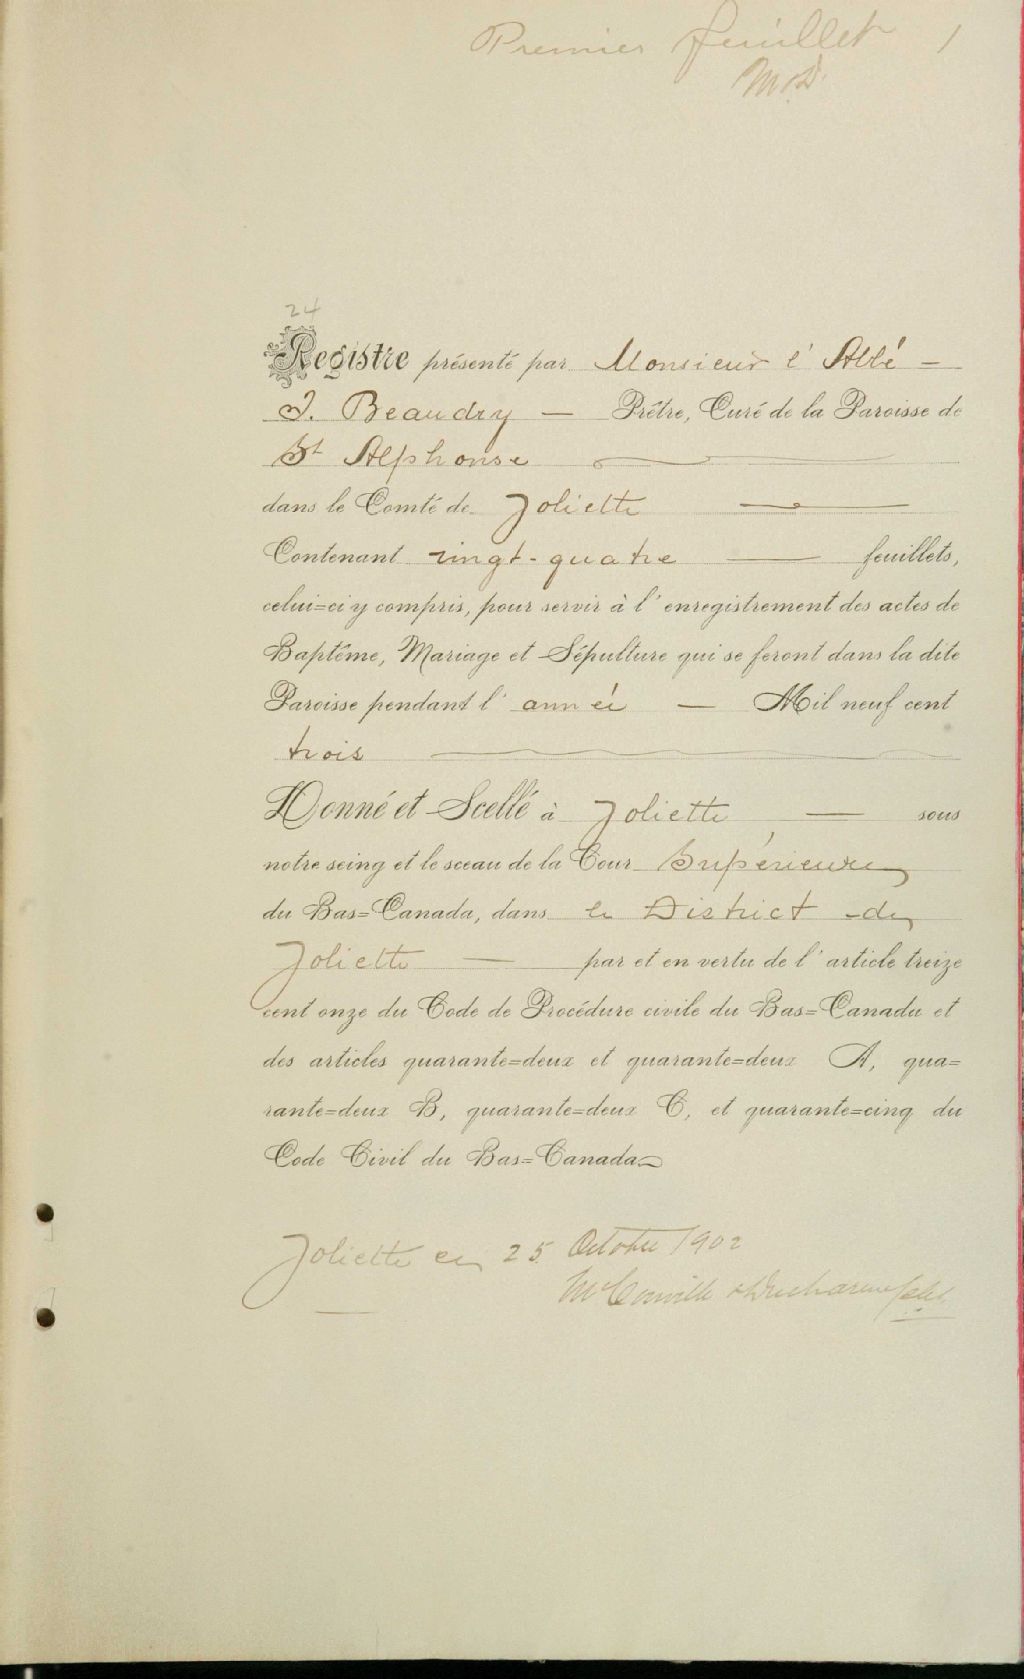 Premier feuillet 1
M.D.
24
Registre présenté par Monsieur l'Abbé –
J. Beaudry — Prêtre, Curé de la Paroisse de
St Alphonse
dans le Comté de Joliette
Contenant vingt-quatre — feuillets,
celui=ci y compris, pour servir à l'enregistrement des actes de
Baptême, Mariage et Sépulture qui se feront dans la dite
Paroisse pendant l'année — Mil neuf cent
trois
Donné et Scellé à Joliette — sous
notre seing et le sceau de la Cour Supérieure
du Bas=Canada, dans le District de
Joliette — par et en vertu de l'article treize
cent onze du Code de Procédure civile du Bas=Canada et
des articles quarante=deux et quarante=deux A, qua=
rante=deux B, quarante=deux C, et quarante=cinq du
Code Civil du Bas=Canada
Joliette ce 25 Octobre 1902
McConville & Ducharme